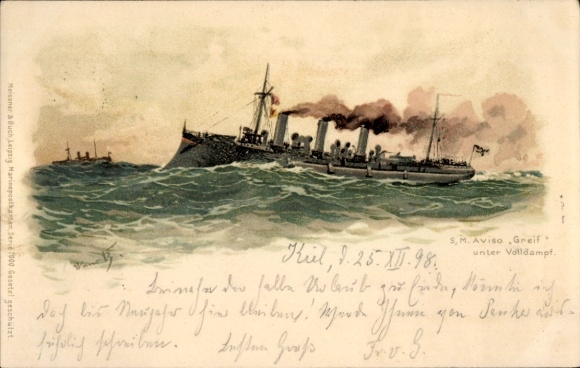 Meissner & Buch, Leipzig Marinepostkarten Serie 1000 Gesetzl. geschützt
S.M. Aviso „Greif"
unter Volldampf.
Kiel, d. 25. XII 98.
Beinahe der halbe Urlaub zu Ende, könnte ich
doch bis Neujahr hier bleiben! Werde Ihnen von aus-
führlich schreiben. Besten Gruß Fr. v. G.